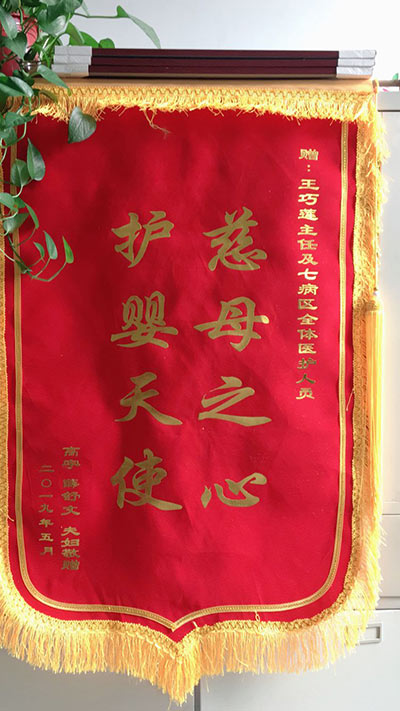 赠：王巧莲主任及七病区全体医护人员
慈母之心
护婴天使
高宇 薛舒文 夫妇敬赠
二〇一九年五月